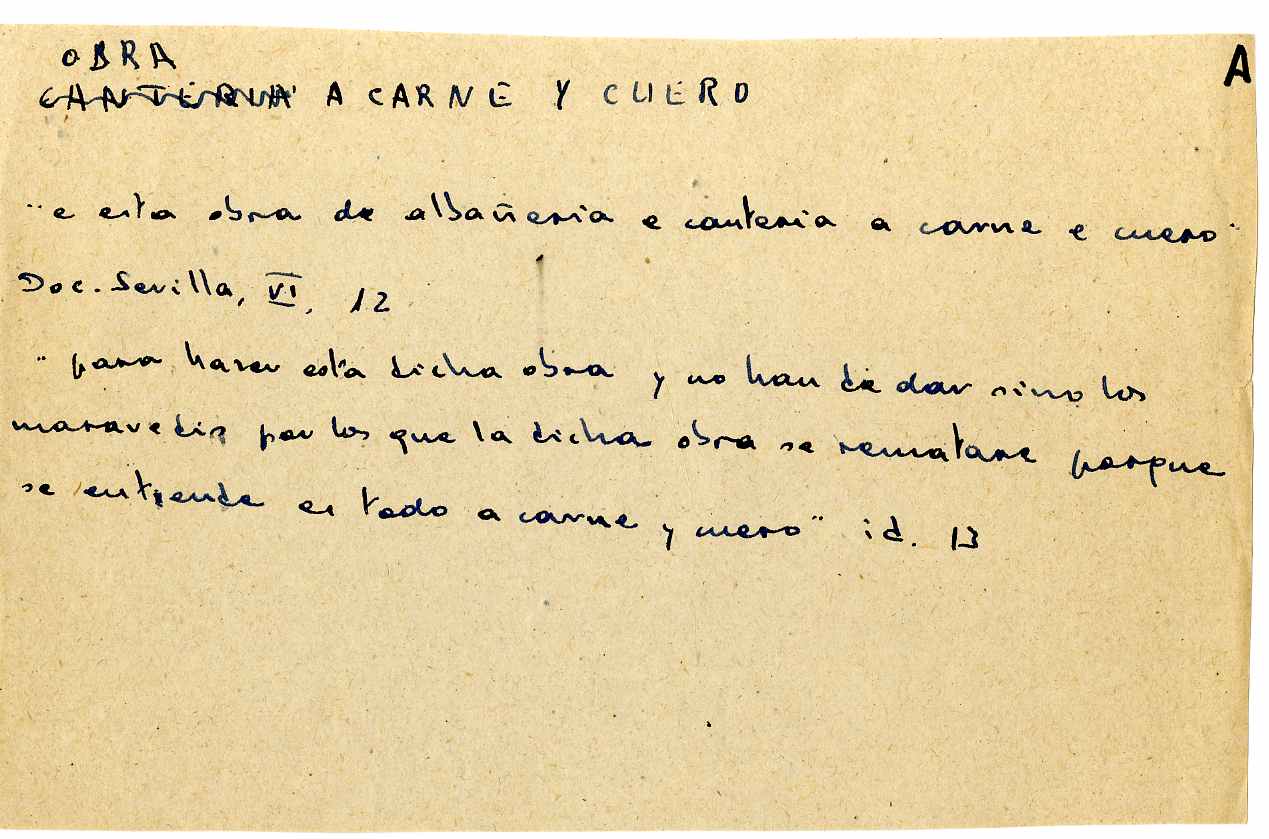 OBRA
A
CANTERIA A CARNE Y CUERO
"e esta obra de albañeria e canteria a carne e cuero"
Doc. Sevilla, VI, 12
"para hazer esta dicha obra y no han de dar sino los
maravedis por los que la dicha obra se rematare porque
se entiende es todo a carne y cuero" id. 13